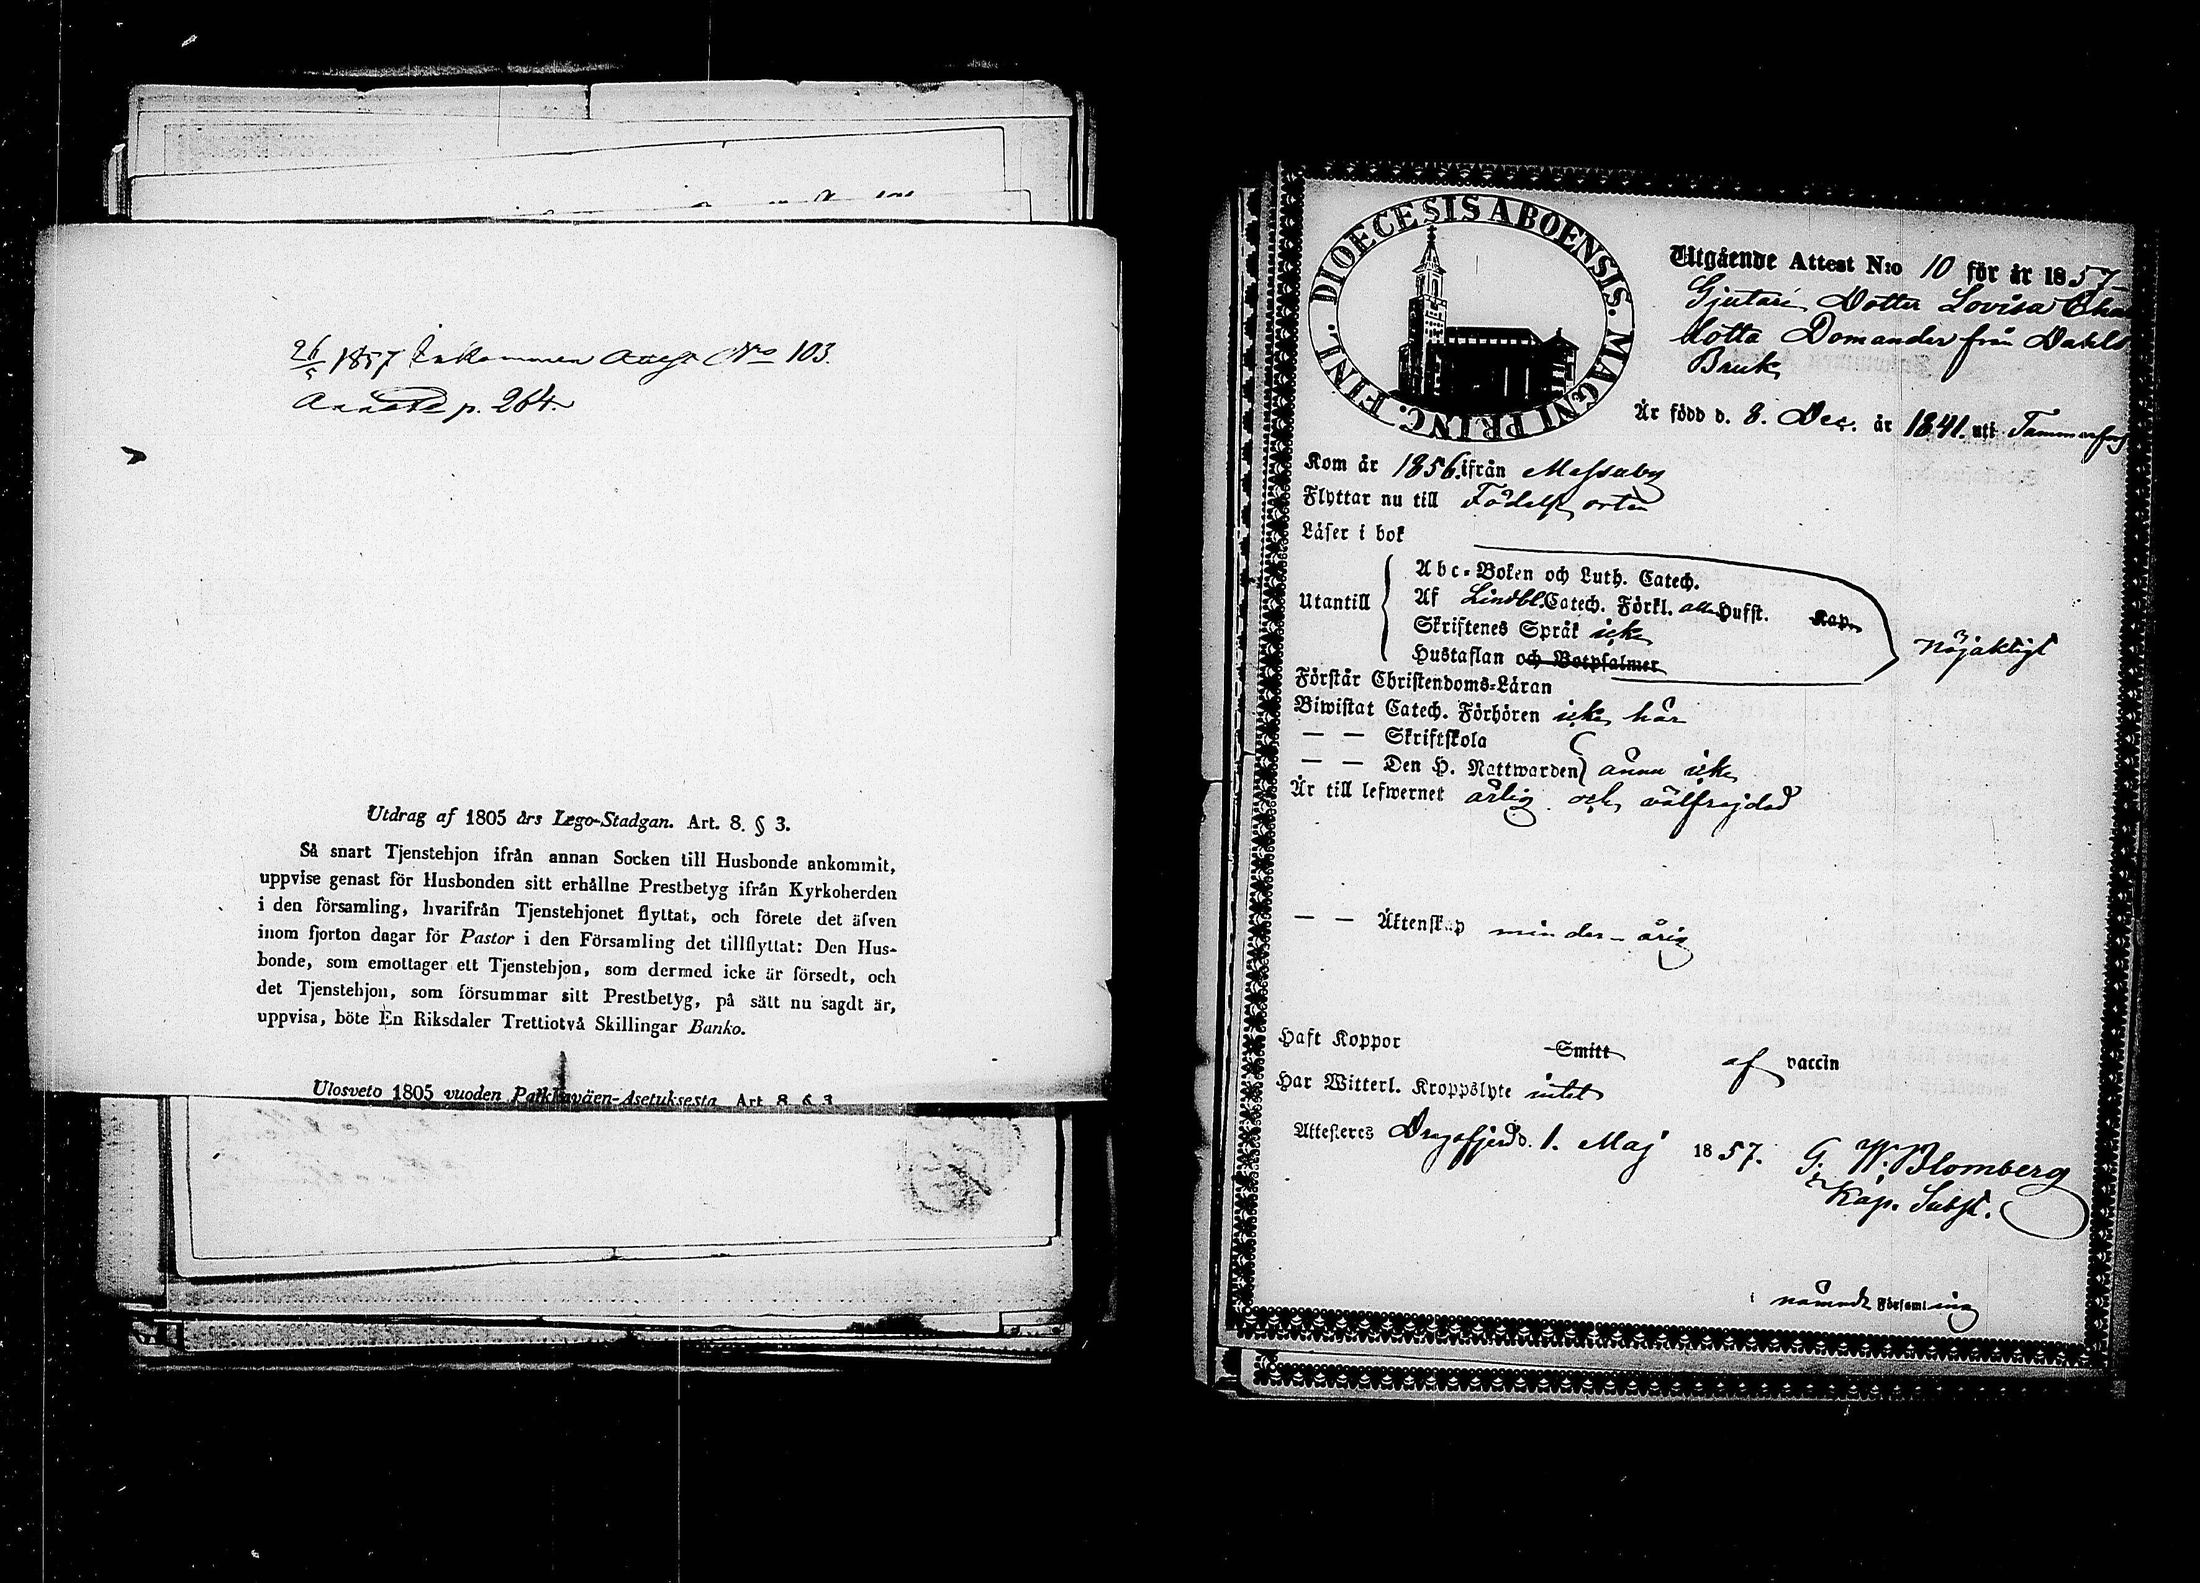 26/5 1857 Inkommen Attest No 103.
Annala p. 264.
Utdrag af 1805 års Lego-Stadgan. Art. 8. § 3.
Så snart Tjenstehjon ifrån annan Socken till Husbonde ankommit,
uppvise genast för Husbonden sitt erhållne Prestbetyg ifrån Kyrkoherden
i den församling, hvarifrån Tjenstehjonet flyttat, och förete det äfven
inom fjorton dagar för Pastor i den Församling det tillflyttat: Den Hus-
bonde, som emottager ett Tjenstehjon, som dermed icke är försedt, och
det Tjenstehjon, som försummar sitt Prestbetyg, på sätt nu sagdt är,
uppvisa, böte En Riksdaler Trettiotvå Skillingar Banko.
Ulosveto 1805 vuoden Palkkaväen-Asetuksesta Art. 8. § 3.
DIOECESIS ABOENSIS. MAGNI PRINC. FINL.
Utgående Attest N:o 10 för år 1857
Gjutari Dotter Lovisa Cha
lotta Domander från Dahls
Bruk
Är född d. 8. Dec. år 1841. uti Tammerfors
Kom år 1856. ifrån Messuby
Flyttar nu till Födelse orten
Läser i bok
Utantill
Abc-Boken och Luth. Catech.
Af Lindbl. Catech. Förkl. alla Hufst. Kap.
Skriftenes Språk icke
Hustaflan och Botpsalmer
nöjaktigt
Förstår Christendoms-Läran
Biwistat Catech. Förhören icke här
— — Skriftskola
— — Den H. Nattwarden } ännu icke
Är till lefwernet ärlig och välfrejdad
— — Äktenskap minder-årig
Haft Koppor Smitt af vaccin
Har Witterl. Kroppslyte intet
Attesteres Dragsfjerd d. 1. Maj 1857. G. W. Blomberg
Kap. Subst.
i nämnde Församling